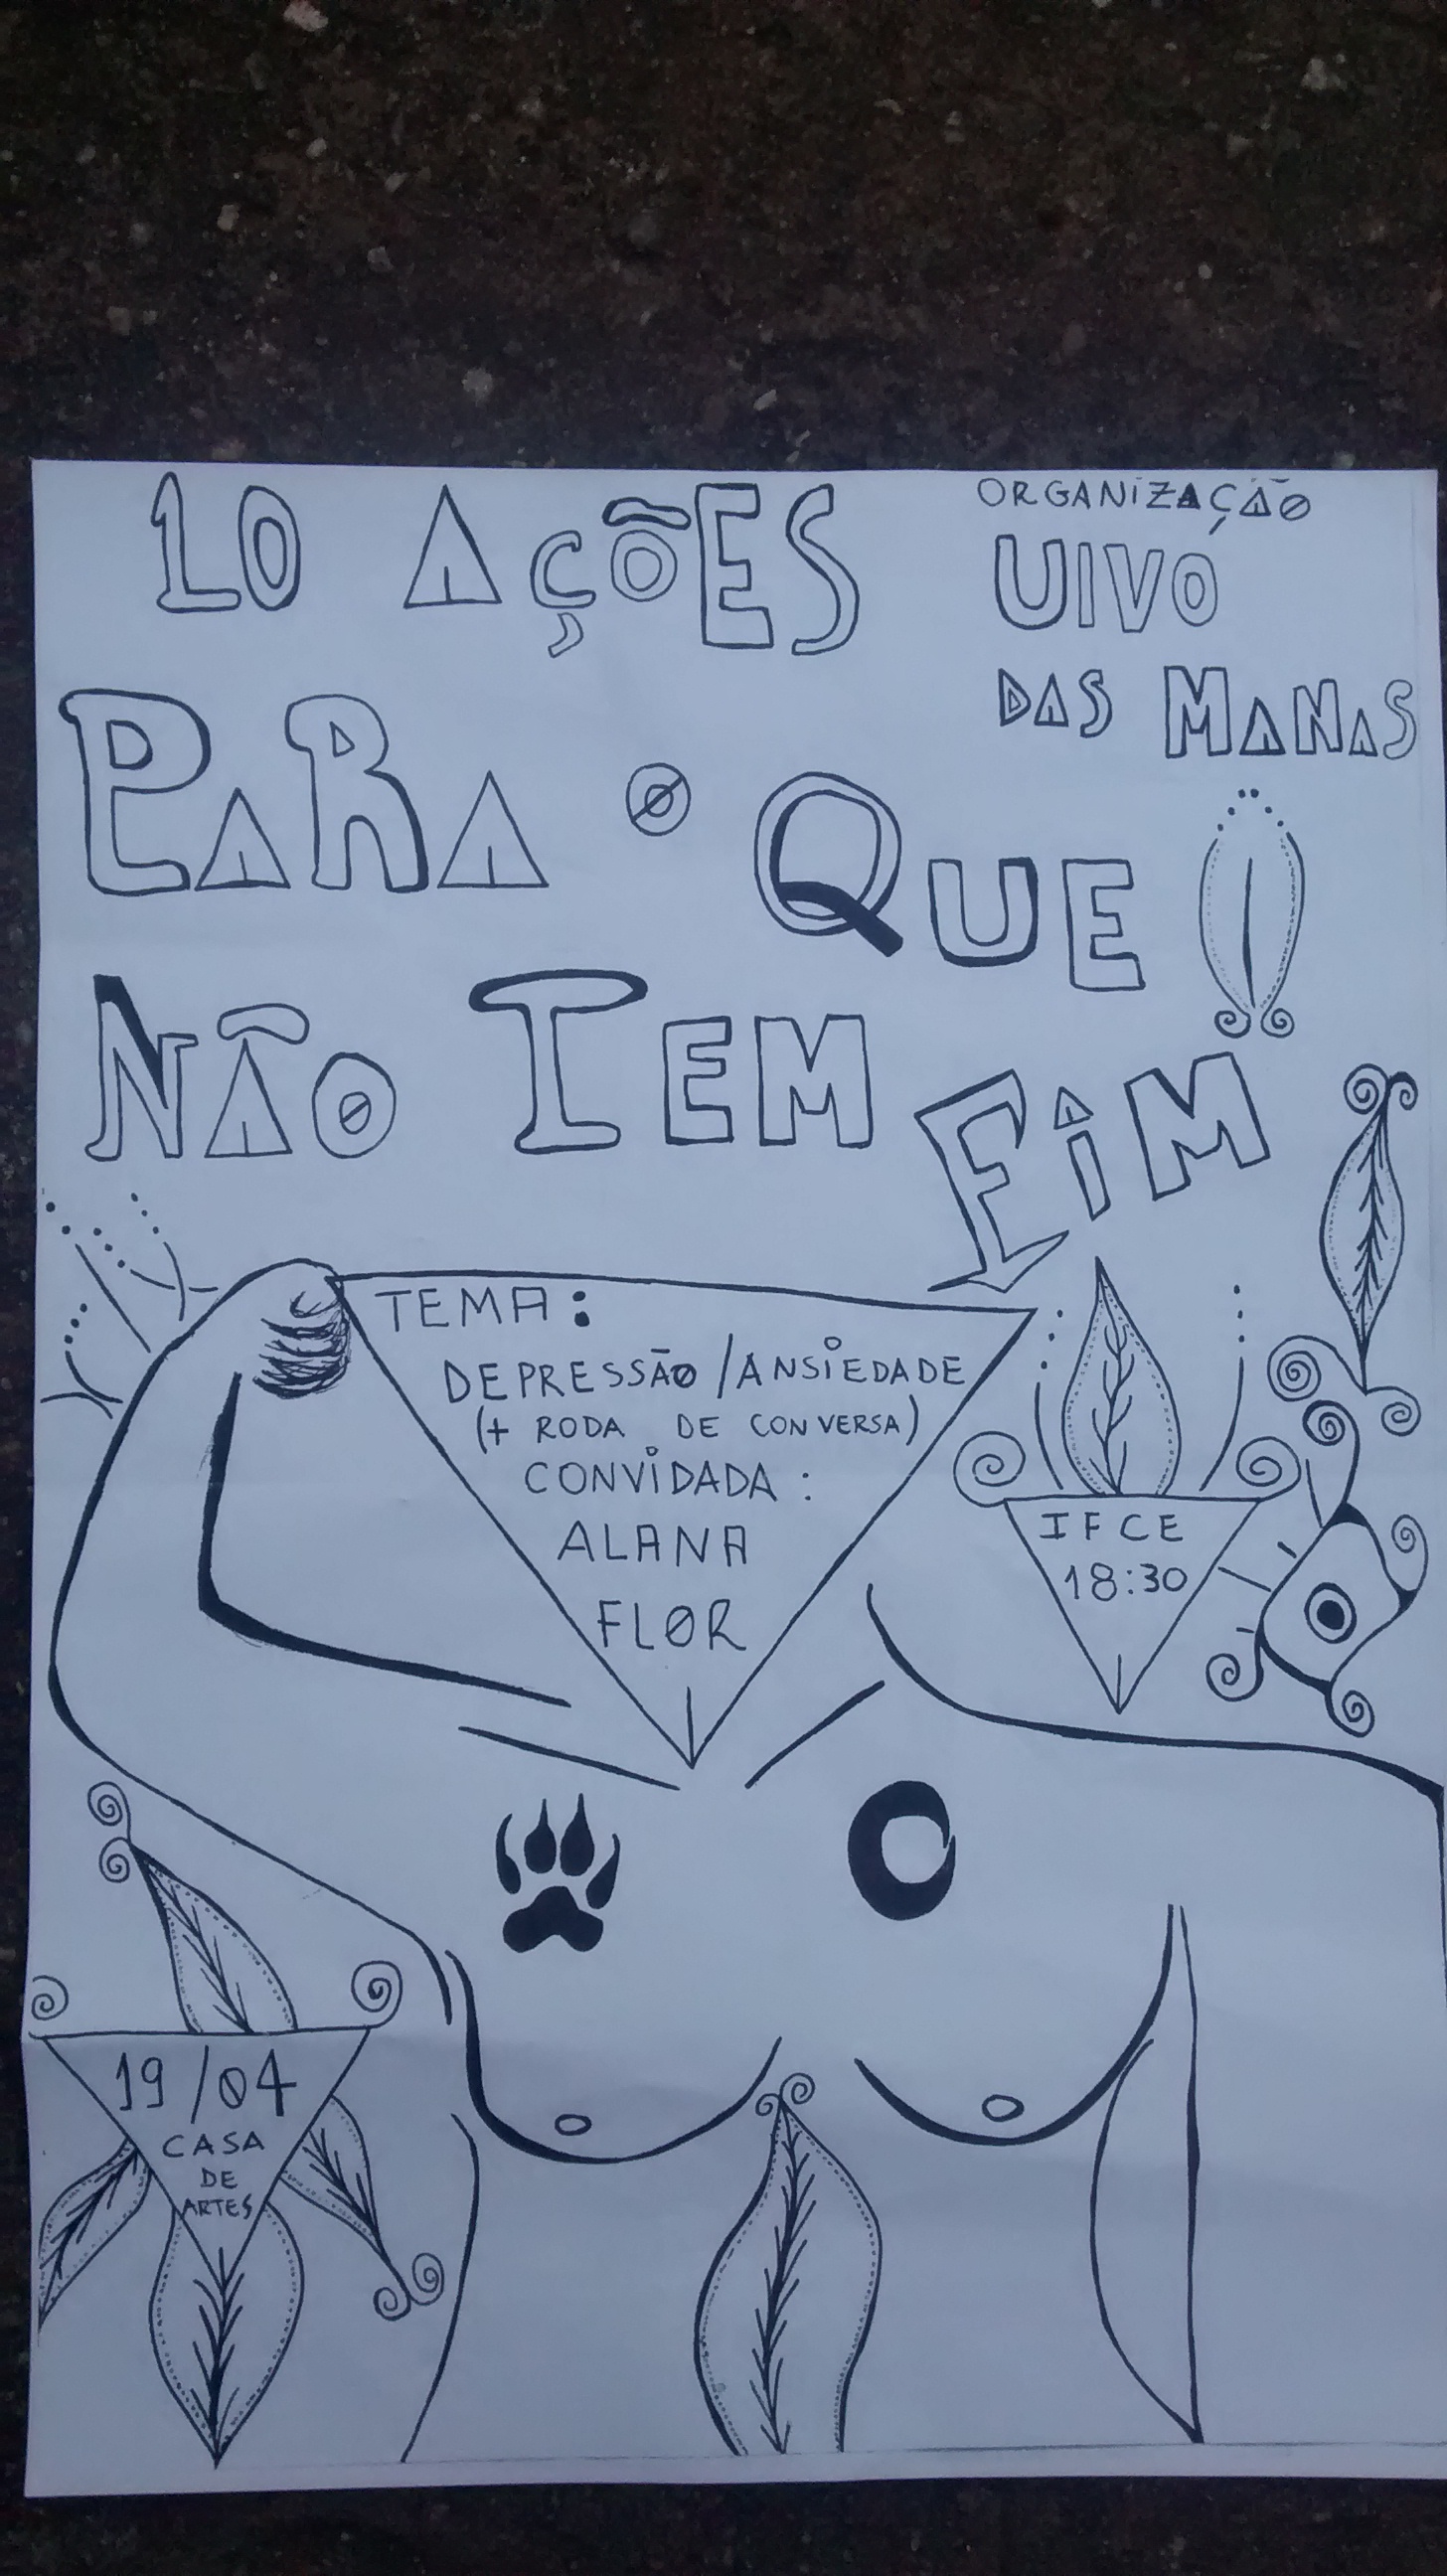 10 AÇÕES
PARA O QUE
NÃO TEM FIM
ORGANIZAÇÃO
UIVO
DAS MANAS
TEMA:
DEPRESSÃO/ANSIEDADE
(+ RODA DE CONVERSA)
CONVIDADA:
ALANA
FLOR
IFCE
18:30
19/04
CASA
DE
ARTES